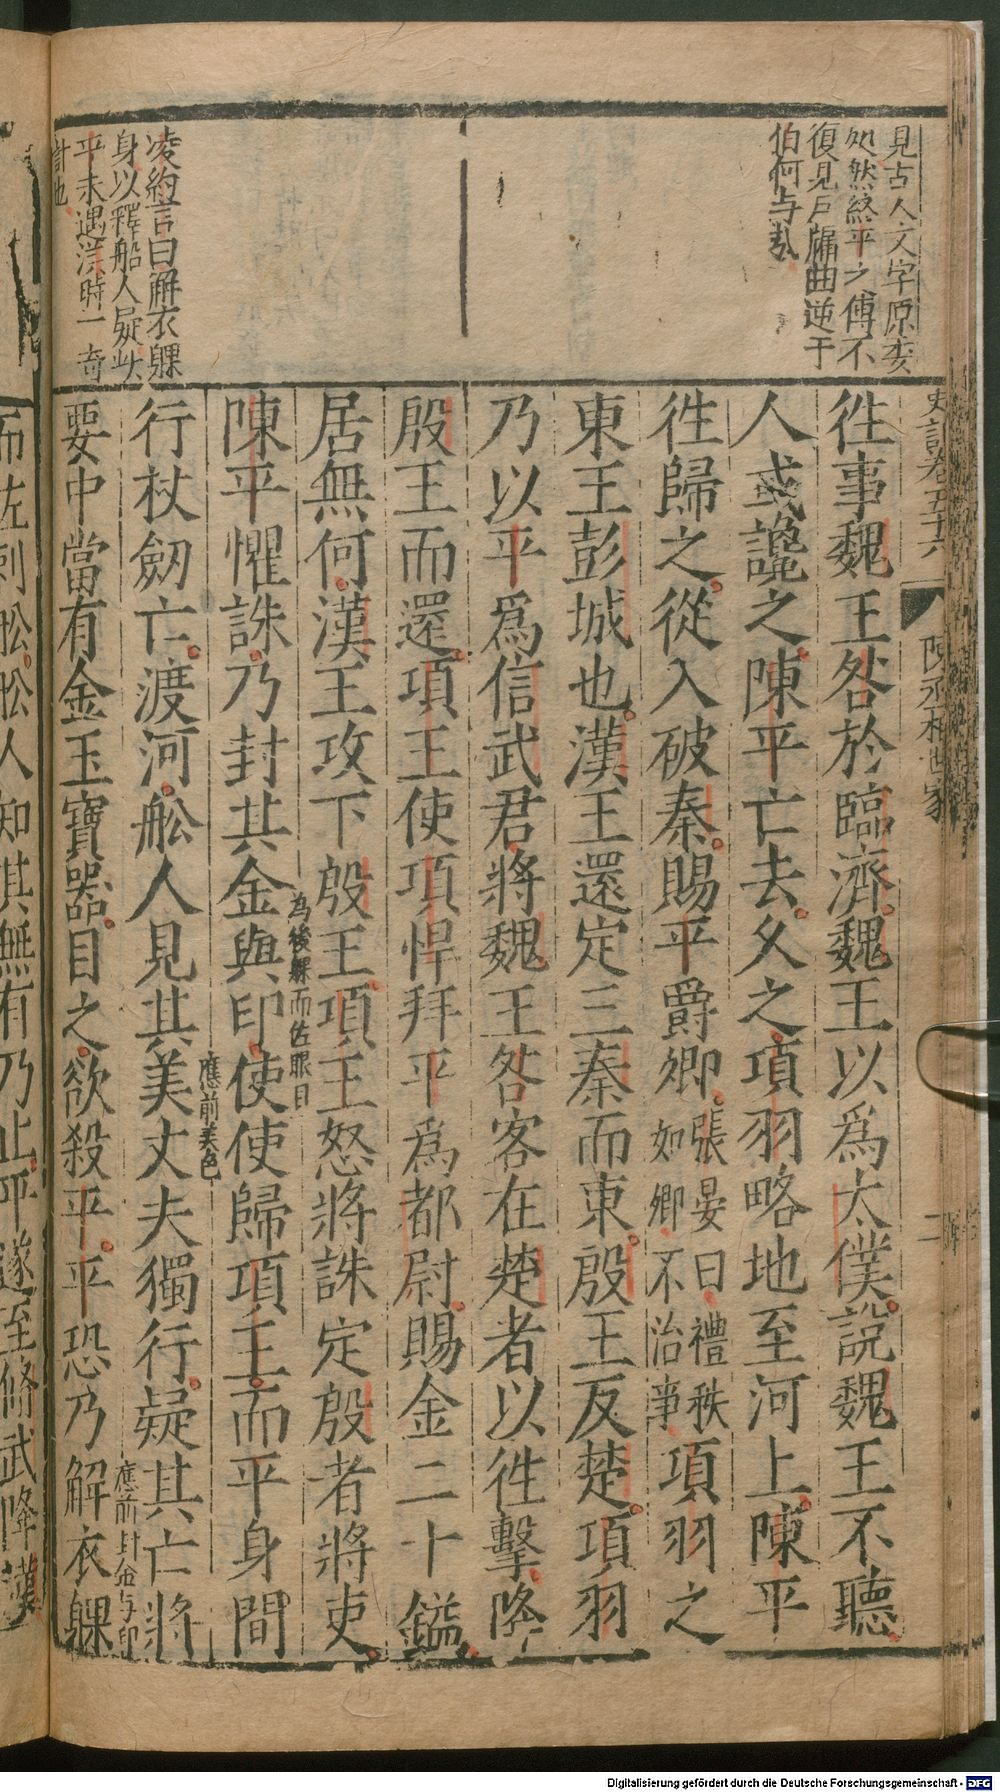 見古人文字原委
処然終平之傳不
復見戶牖曲逆于
伯何与哉
凌約言曰解衣躶
身以釋船人疑此
平未遇漢時一奇
計也
史記卷五十六
陳丞相世家
二
徃事魏王咎於臨濟魏王以爲太僕說魏王不聽
人或讒之陳平亡去久之項羽略地至河上陳平
徃歸之從入破秦賜平爵卿張晏曰禮秩如卿不治事項羽之
東王彭城也漢王還定三秦而東殷王反楚項羽
乃以平爲信武君將魏王咎客在楚者以徃擊降
殷王而還項王使項悍拜平爲都尉賜金二十鎰
居無何漢王攻下殷王項王怒將誅定殷者將吏
為後躶而佐眼目
陳平懼誅乃封其金與印使使歸項王而平身間
應前美色
行杖劒亡渡河舩人見其美丈夫獨行疑其亡將
應前封金与印
要中當有金玉寶器目之欲殺平平恐乃解衣躶
而佐刺舩舩人知其無有乃止平遂至修武降漢
Digitalisierung gefördert durch die Deutsche Forschungsgemeinschaft - DFG